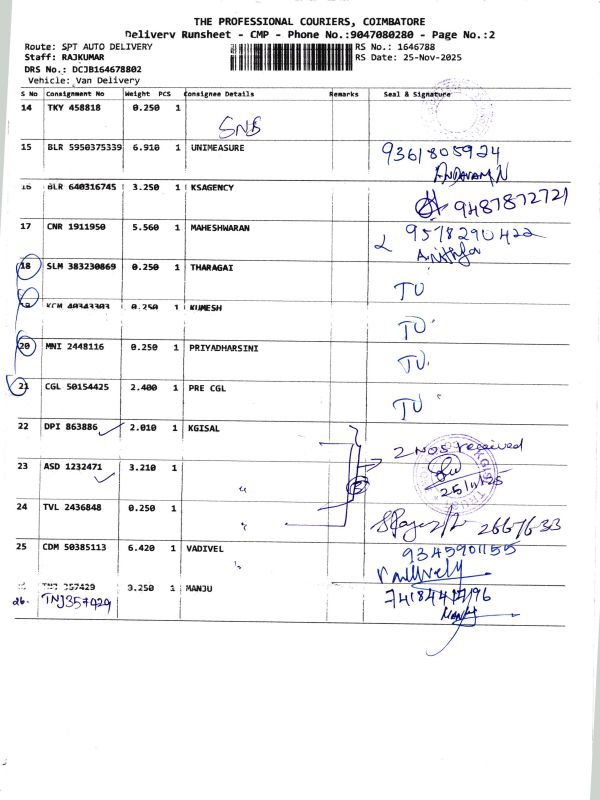 THE PROFESSIONAL COURIERS, COIMBATORE
Delivery Runsheet - CMP - Phone No.:9047080280 - Page No.:2
Route: SPT AUTO DELIVERY RS No.: 1646788
Staff: RAJKUMAR RS Date: 25-Nov-2025
DRS No.: DCJB164678802
Vehicle: Van Delivery
S No Consignment No Weight PCS Consignee Details Remarks Seal & Signature
14 TKY 458818 0.250 1 SNB
15 BLR 5950375339 6.910 1 UNIMEASURE 9361805924
16 BLR 640316745 3.250 1 KSAGENCY 9487872721
17 CNR 1911950 5.560 1 MAHESHWARAN 9578290422
18 SLM 383230869 0.250 1 THARAGAI TU
19 KCM 40343303 0.250 1 KUMESH TU
20 MNI 2448116 0.250 1 PRIYADHARSINI TU
21 CGL 50154425 2.400 1 PRE CGL TU
22 DPI 863886 2.010 1 KGISAL 2 NOS received
23 ASD 1232471 3.210 1 " 25/11/25
24 TVL 2436848 0.250 1 " 2667633
25 CDM 50385113 6.420 1 VADIVEL 9345901155
TNJ 357429 3.250 1 MANJU
26. TNJ357429